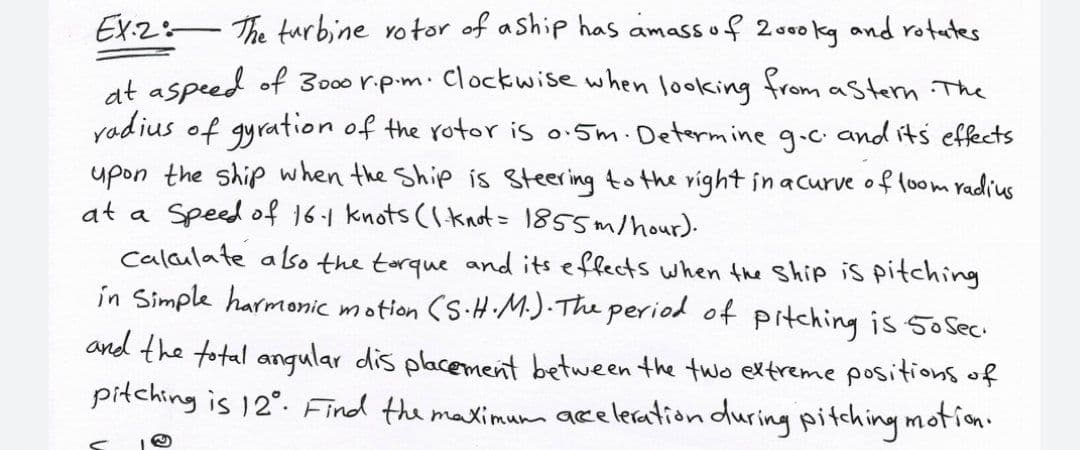 EX.2:— The turbine rotor of a ship has a mass of 2000 kg and rotates
at a speed of 3000 r.p.m. clockwise when looking from a stern. The
radius of gyration of the rotor is 0.5m. Determine g.c. and its effects
upon the ship when the ship is steering to the right in a curve of 100m radius
at a speed of 16.1 knots (1 knot = 1855 m/hour).
Calculate also the torque and its effects when the ship is pitching
in Simple harmonic motion (S.H.M.). The period of pitching is 50 Sec.
and the total angular displacement between the two extreme positions of
pitching is 12°. Find the maximum acceleration during pitching motion.